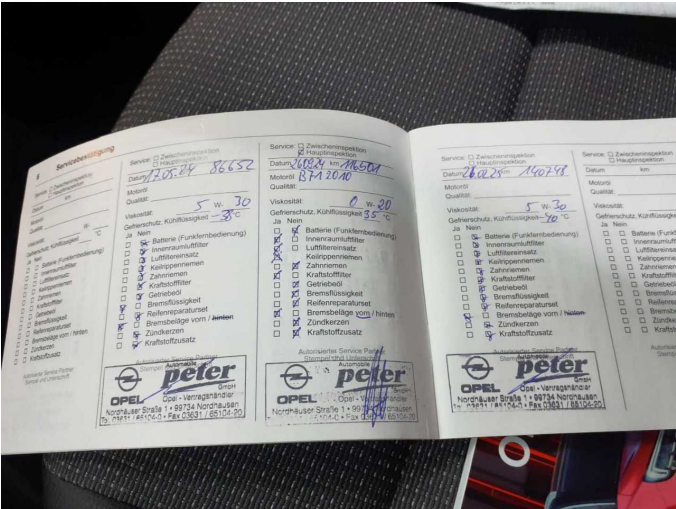 Servicebestätigung
Service: Zwischeninspektion
Hauptinspektion
Datum km
Motoröl
Qualität:
Viskosität: W-
°C
Ja Nein
Batterie (Funkfernbedienung)
Innenraumluftfilter
Luftfiltereinsatz
Keilrippenriemen
Zahnriemen
Kraftstofffilter
Getriebeöl
Bremsflüssigkeit
Reifenreparaturset
Bremsbeläge vorn / hinten
Zündkerzen
Kraftstoffzusatz
Autorisierter Service Partner
Stempel und Unterschrift
Service: Zwischeninspektion
Hauptinspektion
Datum 17.05.24 86652
Motoröl
Qualität:
Viskosität: 5 W- 30
Gefrierschutz, Kühlflüssigkeit -38 °C
Ja Nein
Batterie (Funkfernbedienung)
Innenraumluftfilter
Luftfiltereinsatz
Keilrippenriemen
Zahnriemen
Kraftstofffilter
Getriebeöl
Bremsflüssigkeit
Reifenreparaturset
Bremsbeläge vorn / hinten
Zündkerzen
Kraftstoffzusatz
Autorisierter Service Partner
Automobile
peter
GmbH
OPEL Opel - Vertragshändler
Nordhäuser Straße 1 • 99734 Nordhausen
Tel. 03631 / 65104-0 • Fax 03631 / 65104-20
Service: Zwischeninspektion
Hauptinspektion
Datum 260924 km 116501
Motoröl B71 2010
Qualität:
Viskosität: 0 W- 20
Gefrierschutz, Kühlflüssigkeit 35 °C
Ja Nein
Batterie (Funkfernbedienung)
Innenraumluftfilter
Luftfiltereinsatz
Keilrippenriemen
Zahnriemen
Kraftstofffilter
Getriebeöl
Bremsflüssigkeit
Reifenreparaturset
Bremsbeläge vorn / hinten
Zündkerzen
Kraftstoffzusatz
Autorisierter Service Partner
Stempel und Unterschrift
Automobile
peter
GmbH
OPEL Opel - Vertragshändler
Nordhäuser Straße 1 • 99734 Nordhausen
Fax 03631 / 65104-20
Service: Zwischeninspektion
Hauptinspektion
Datum 26.02.25 km 140748
Motoröl
Qualität:
Viskosität: 5 W- 30
Gefrierschutz, Kühlflüssigkeit -40 °C
Ja Nein
Batterie (Funkfernbedienung)
Innenraumluftfilter
Luftfiltereinsatz
Keilrippenriemen
Zahnriemen
Kraftstofffilter
Getriebeöl
Bremsflüssigkeit
Reifenreparaturset
Bremsbeläge vorn / hinten
Zündkerzen
Kraftstoffzusatz
Autorisierter Service Partner
Automobile
peter
GmbH
OPEL Opel - Vertragshändler
Nordhäuser Straße 1 • 99734 Nordhausen
Tel. 03631 / 65104-0 • Fax 03631 / 65104-20
Service: Zwischeninspektion
Hauptinspektion
Datum km
Motoröl
Qualität:
Viskosität:
Gefrierschutz, Kühlflüs
Ja Nein
Batterie (Funkf
Innenraumluft
Luftfiltereinsa
Keilrippenrie
Zahnriemen
Kraftstofffilte
Getriebeöl
Bremsflüs
Reifenrep
Bremsbel
Zündkerz
Kraftstoff